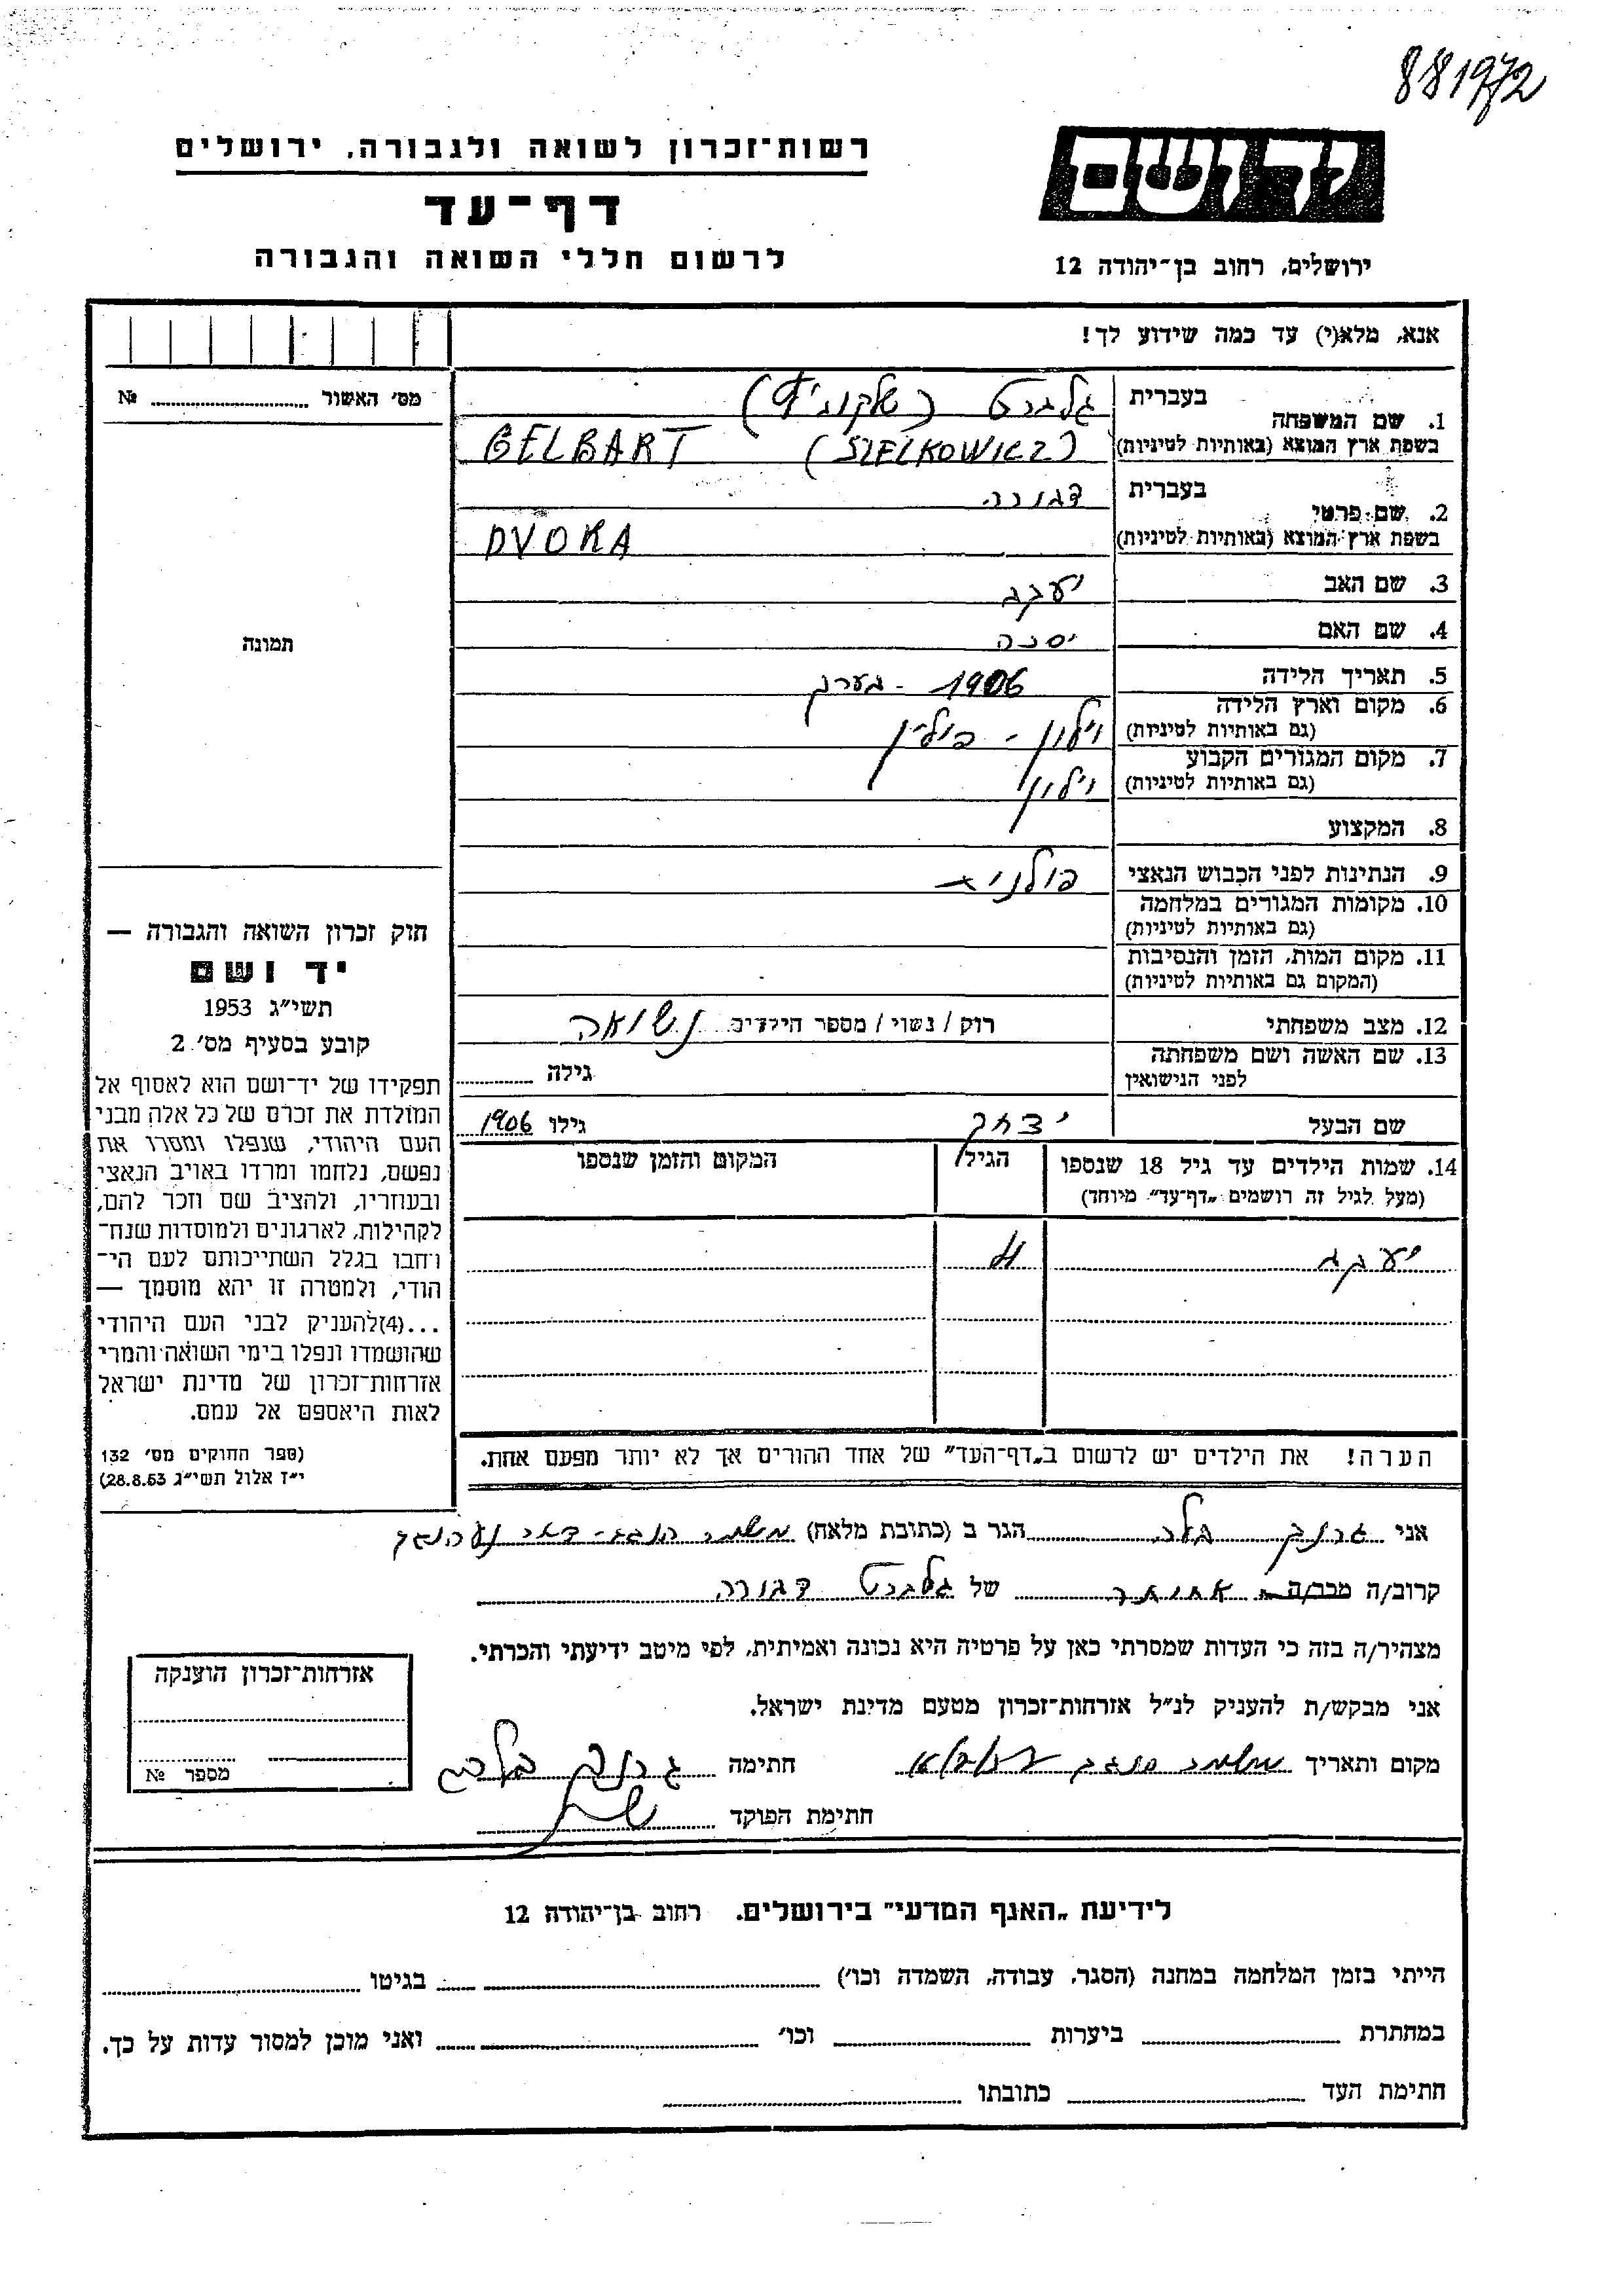 881972
רשות־זכרון לשואה ולגבורה, ירושלים
דף־עד
לרשום חללי השואה והגבורה
ידושם
ירושלים, רחוב בן־יהודה 12
אנא, מלא(י) עד כמה שידוע לך!
מס׳ האשור № 
1. שם המשפחה
בעברית גלברט (שלקוביץ)
בשפת ארץ המוצא (באותיות לטיניות) GELBART (SZELKOWICZ)
2. שם פרטי
בעברית דבורה
בשפת ארץ המוצא (באותיות לטיניות) DVORA
3. שם האב יעקב
4. שם האם
5. תאריך הלידה 1906 - בערך
6. מקום וארץ הלידה וילון - פולין
(גם באותיות לטיניות)
7. מקום המגורים הקבוע וילון
(גם באותיות לטיניות)
8. המקצוע
9. הנתינות לפני הכבוש הנאצי פולנית
10. מקומות המגורים במלחמה
(גם באותיות לטיניות)
11. מקום המות, הזמן והנסיבות
(המקום גם באותיות לטיניות)
12. מצב משפחתי רוק / נשוי / מספר הילדים נשואה
13. שם האשה ושם משפחתה
לפני הנישואין גילה
שם הבעל יצחק גילו 1906
14. שמות הילדים עד גיל 18 שנספו הגיל המקום והזמן שנספו
(מעל לגיל זה רושמים „דף־עד״ מיוחד)
יעקב
הערה! את הילדים יש לרשום ב„דף־העד״ של אחד ההורים אך לא יותר מפעם אחת.
תמונה
חוק זכרון השואה והגבורה —
יד ושם
תשי״ג 1953
קובע בסעיף מס׳ 2
תפקידו של יד־ושם הוא לאסוף אל
המולדת את זכרם של כל אלה מבני
העם היהודי, שנפלו ומסרו את
נפשם, נלחמו ומרדו באויב הנאצי
ובעוזריו, ולהציב שם וזכר להם,
לקהילות, לארגונים ולמוסדות שנח־
רחבו בגלל השתייכותם לעם הי־
הודי, ולמטרה זו יהא מוסמך —
...(4)להעניק לבני העם היהודי
שהושמדו ונפלו בימי השואה והמרי
אזרחות־זכרון של מדינת ישראל
לאות היאספם אל עמם.
(ספר החוקים מס׳ 132
י״ז אלול תשי״ג 28.8.53)
אני הגר ב (כתובת מלאה) משמר הנגב - דאר נע הנגב
קרוב/ה מכר/ה של גלברט דבורה
מצהיר/ה בזה כי העדות שמסרתי כאן על פרטיה היא נכונה ואמיתית, לפי מיטב ידיעתי והכרתי.
אני מבקש/ת להעניק לנ״ל אזרחות־זכרון מטעם מדינת ישראל.
מקום ותאריך משמר הנגב חתימה
חתימת הפוקד
אזרחות־זכרון הוענקה
מספר №
לידיעת „האגף המדעי״ בירושלים, רחוב בן־יהודה 12
הייתי בזמן המלחמה במחנה (הסגר, עבודה, השמדה וכו׳) בגיטו
במחתרת ביערות וכו׳ ואני מוכן למסור עדות על כך.
חתימת העד כתובתו